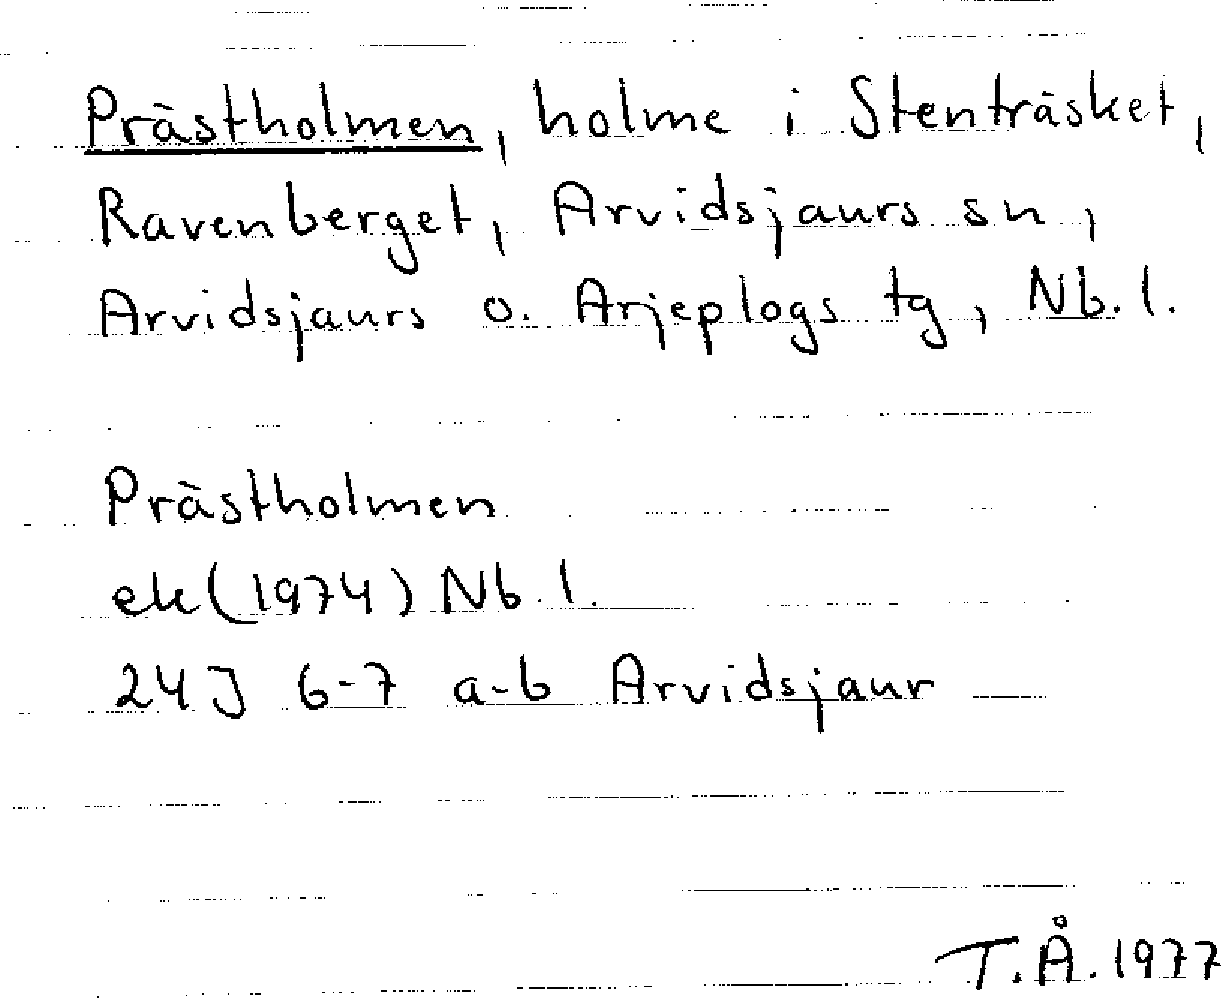 Prästholmen, holme i Stenträsket,
Ravenberget, Arvidsjaurs sn,
Arvidsjaurs o. Arjeplogs tg, Nb. l.
Prästholmen
ek (1974) Nb. l.
24J 6-7 a-b Arvidsjaur
T.Å. 1977